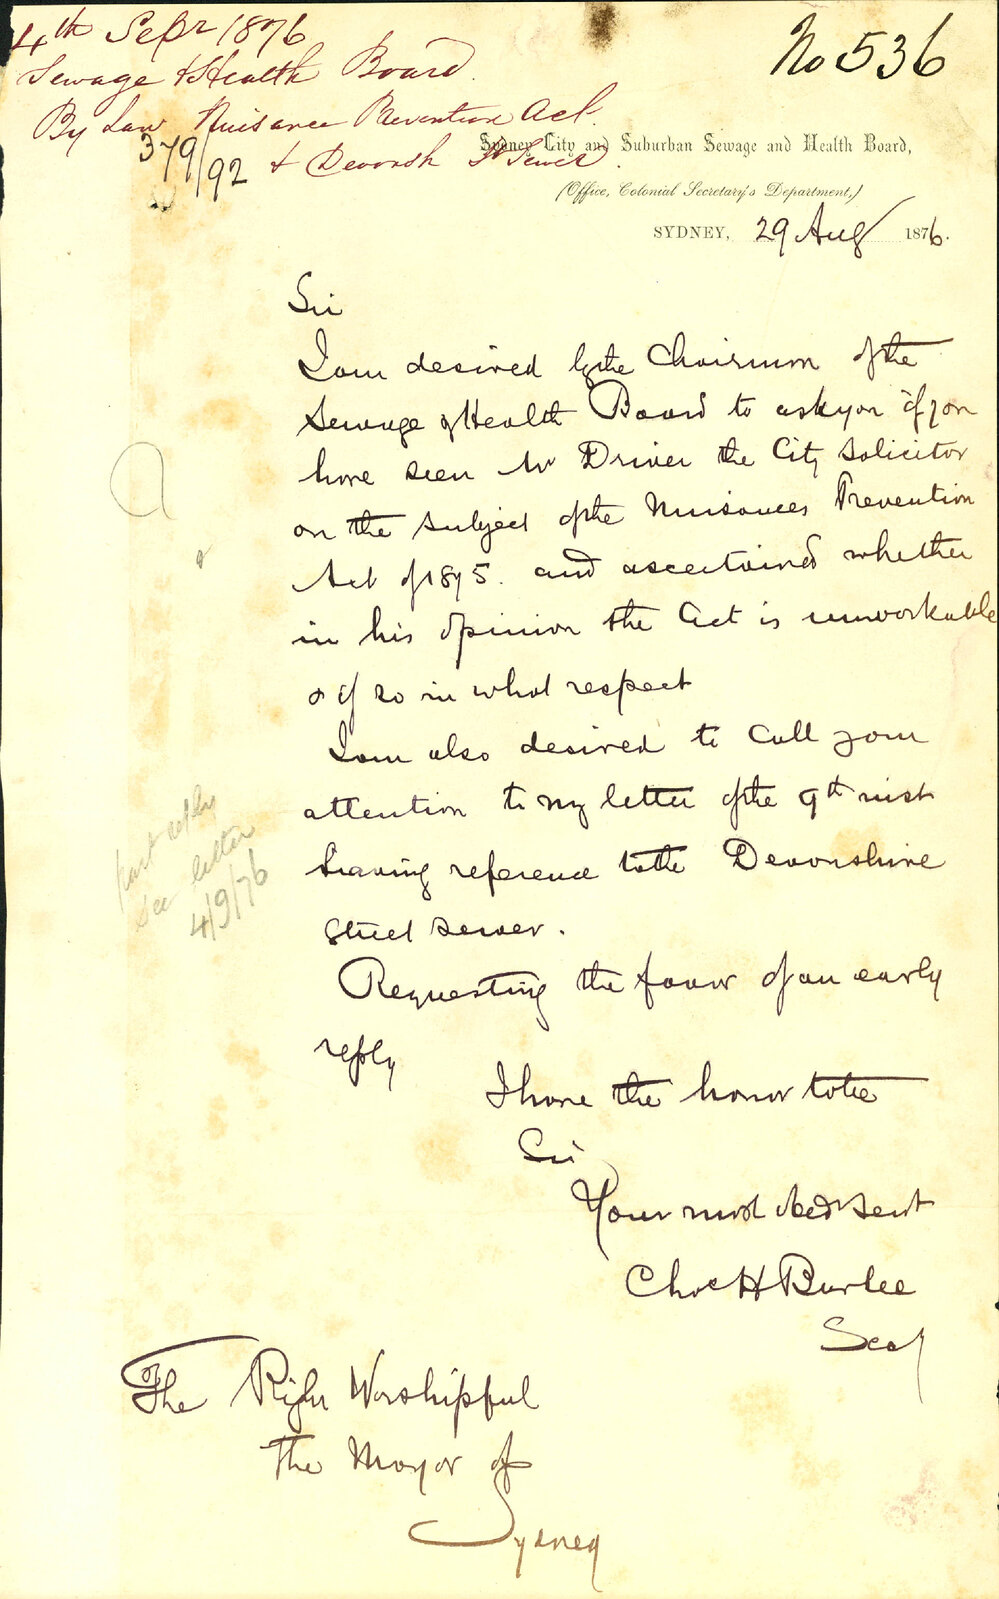 4th Sepr 1876
Sewage & Health Board.
By Law Nuisance Prevention Act.
& Devonsh St Sewer.
No 536
379/92
Sydney City and Suburban Sewage and Health Board,
(Office, Colonial Secretary's Department,)
SYDNEY, 29 Aug 1876.
Sir
I am desired by the Chairman of the
Sewage & Health Board to ask you if you
have seen Mr Driver the City Solicitor
on the subject of the Nuisances Prevention
Act of 1875. and ascertained whether
in his opinion the Act is unworkable
& if so in what respect
I am also desired to call your
attention to my letter of the 9th inst
having reference to the Devonshire
Street Sewer.
Requesting the favor of an early
reply
I have the honor to be
Sir
Your most obed Sevt
Chas H Burlee
Secy
The Right Worshipful
the Mayor of
Sydney
part reply
see letter
4/9/76